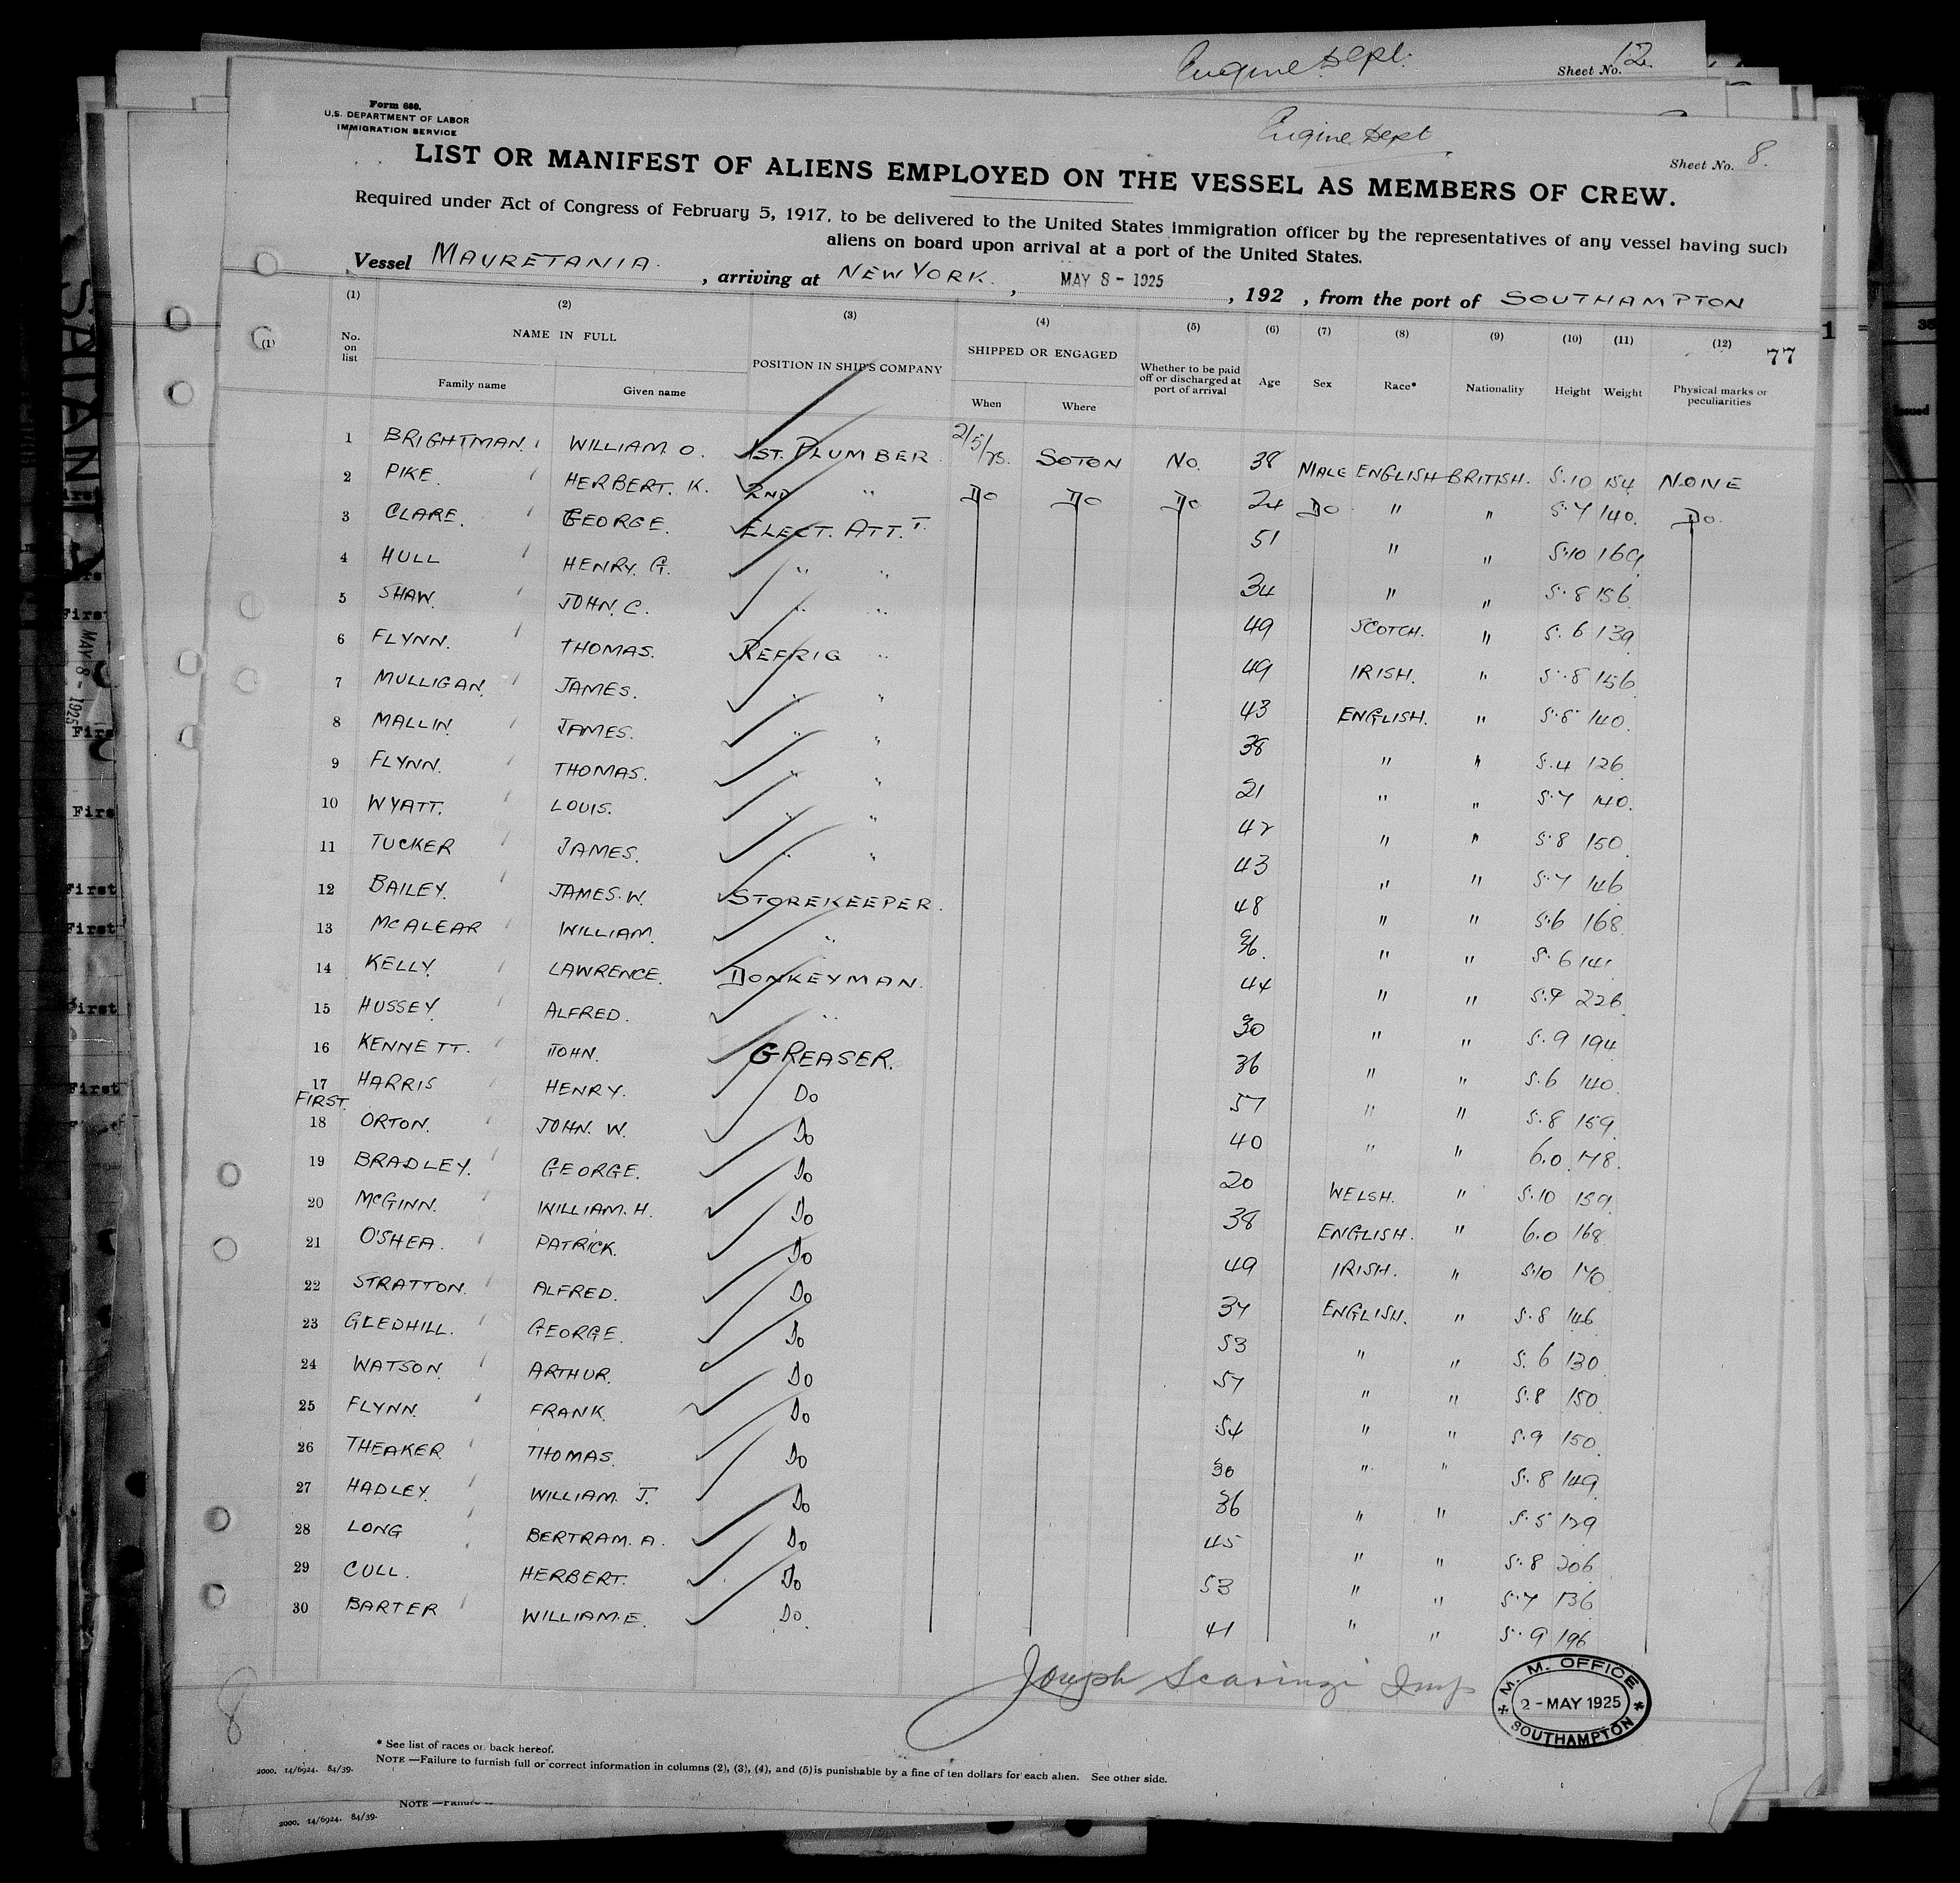 Engine Dept. Sheet No. 12
Form 680.
U.S. DEPARTMENT OF LABOR
IMMIGRATION SERVICE
Engine Dept
Sheet No. 8.
LIST OR MANIFEST OF ALIENS EMPLOYED ON THE VESSEL AS MEMBERS OF CREW.
Required under Act of Congress of February 5, 1917, to be delivered to the United States immigration officer by the representatives of any vessel having such
aliens on board upon arrival at a port of the United States.
Vessel MAURETANIA. , arriving at NEW YORK. , MAY 8 - 1925 , 192 , from the port of SOUTHAMPTON
(1) (2) (3) (4) (5) (6) (7) (8) (9) (10) (11) (12)
77
No. on list NAME IN FULL POSITION IN SHIP'S COMPANY SHIPPED OR ENGAGED Whether to be paid off or discharged at port of arrival Age Sex Race* Nationality Height Weight Physical marks or peculiarities
Family name Given name When Where
1 BRIGHTMAN. WILLIAM. O. 1ST. PLUMBER 2/5/25. SOTON NO. 38 MALE ENGLISH BRITISH. 5.10 154 NONE
2 PIKE. HERBERT. K. 2ND " DO DO DO 24 DO " " 5.7 140. DO.
3 CLARE. GEORGE. ELECT. ATT.T. 51 " " 5.10 169
4 HULL HENRY. G. " " 34 " " 5.8 156
5 SHAW. JOHN. C. " " 49 SCOTCH. " 5.6 139
6 FLYNN. THOMAS. REFRIG " 49 IRISH. " 5.8 156
7 MULLIGAN. JAMES. " " 43 ENGLISH. " 5.8 140.
8 MALLIN. JAMES. " " 38 " " 5.4 126
9 FLYNN. THOMAS. " " 21 " " 5.7 140.
10 WYATT. LOUIS. " " 42 " " 5.8 150.
11 TUCKER JAMES. " " 43 " " 5.7 146
12 BAILEY. JAMES. W. STOREKEEPER. 48 " " 5.6 168.
13 MCALEAR WILLIAM. " 36. " " 5.6 141
14 KELLY. LAWRENCE. DONKEYMAN. 44 " " 5.9 226
15 HUSSEY. ALFRED. " 30 " " 5.9 194
16 KENNETT. JOHN. GREASER. 36 " " 5.6 140
17 HARRIS HENRY. DO 57 " " 5.8 159.
FIRST.
18 ORTON. JOHN. W. DO 40 " " 6.0 178.
19 BRADLEY. GEORGE. DO 20 WELSH. " 5.10 159
20 McGINN. WILLIAM. H. DO 38 ENGLISH. " 6.0 168
21 O'SHEA. PATRICK. DO 49 IRISH. " 5.10 170
22 STRATTON. ALFRED. DO 37 ENGLISH. " 5.8 146
23 GLEDHILL. GEORGE. DO 53 " " 5.6 130
24 WATSON. ARTHUR. DO 57 " " 5.8 150.
25 FLYNN. FRANK. DO 54 " " 5.9 150.
26 THEAKER THOMAS. DO 30 " " 5.8 149
27 HADLEY. WILLIAM. J. DO 36 " " 5.5 129
28 LONG BERTRAM. A. DO 45 " " 5.8 206
29 CULL. HERBERT. DO 53 " " 5.7 136
30 BARTER WILLIAM. E. DO. 41 " " 5.9 196
Joseph Scarinzi Insp
M. M. OFFICE
2 - MAY 1925
SOUTHAMPTON
8
* See list of races on back hereof.
NOTE —Failure to furnish full or correct information in columns (2), (3), (4), and (5) is punishable by a fine of ten dollars for each alien. See other side.
2000. 14/6924. 84/39.
NOTE —Failure
2000. 14/6924. 84/39.